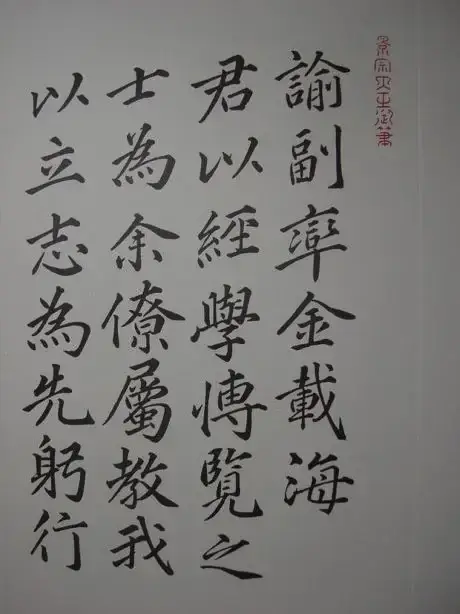 景宗大王御筆
諭副率金載海
君以經學愽覽之
士為余僚屬教我
以立志為先躬行